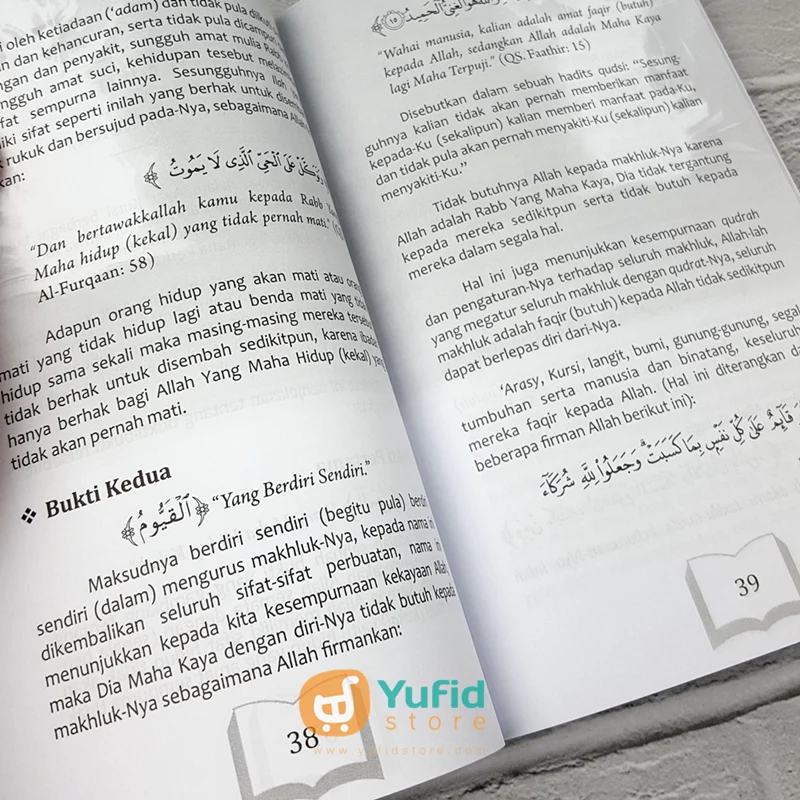 oleh ketiadaan ('adam) dan tidak pula diiku
dan kehancuran, serta tidak pula dicampuri
dan penyakit, sungguh amat mulia Rabb
amat suci, kehidupan tesebut melazim
sempurna lainnya. Sesungguhnya Ilah
sifat seperti inilah yang berhak untuk disem
rukuk dan bersujud pada-Nya, sebagaimana Allah
kan:
وَتَوَكَّلْ عَلَى الْحَيِّ الَّذِي لَا يَمُوتُ
“Dan bertawakkallah kamu kepada Rabb
Maha hidup (kekal) yang tidak pernah mati.”
Al-Furqaan: 58)
Adapun orang hidup yang akan mati atau orang
mati yang tidak hidup lagi atau benda mati yang tida
hidup sama sekali maka masing-masing mereka tersebu
tidak berhak untuk disembah sedikitpun, karena ibada
hanya berhak bagi Allah Yang Maha Hidup (kekal) yang
tidak akan pernah mati.
❖ Bukti Kedua
﴿الْقَيُّومُ﴾ “Yang Berdiri Sendiri.”
Maksudnya berdiri sendiri (begitu pula) berdiri
sendiri (dalam) mengurus makhluk-Nya, kepada nama in
dikembalikan seluruh sifat-sifat perbuatan, nama in
menunjukkan kepada kita kesempurnaan kekayaan Allah
maka Dia Maha Kaya dengan diri-Nya tidak butuh kepada
makhluk-Nya sebagaimana Allah firmankan:
38
هُوَ الْغَنِيُّ الْحَمِيدُ ﴿١٥﴾
“Wahai manusia, kalian adalah amat faqir (butuh)
kepada Allah, sedangkan Allah adalah Maha Kaya
lagi Maha Terpuji.” (QS. Faathir: 15)
Disebutkan dalam sebuah hadits qudsi: “Sesung-
guhnya kalian tidak akan pernah memberikan manfaat
kepada-Ku (sekalipun) kalian memberi manfaat pada-Ku,
dan tidak pula akan pernah menyakiti-Ku (sekalipun) kalian
menyakiti-Ku.”
Tidak butuhnya Allah kepada makhluk-Nya karena
Allah adalah Rabb Yang Maha Kaya, Dia tidak tergantung
kepada mereka sedikitpun serta tidak butuh kepada
mereka dalam segala hal.
Hal ini juga menunjukkan kesempurnaan qudrah
dan pengaturan-Nya terhadap seluruh makhluk, Allah-lah
yang megatur seluruh makhluk dengan qudrat-Nya, seluruh
makhluk adalah faqir (butuh) kepada Allah tidak sedikitpun
dapat berlepas diri dari-Nya.
‘Arasy, Kursi, langit, bumi, gunung-gunung, segal
tumbuhan serta manusia dan binatang, keseluruh
mereka faqir kepada Allah. (Hal ini diterangkan da
beberapa firman Allah berikut ini):
قَآئِمٌ عَلَىٰ كُلِّ نَفْسٍ بِمَا كَسَبَتْ وَجَعَلُوا لِلَّهِ شُرَكَآءَ
39
Yufid
store
www.yufidstore.com